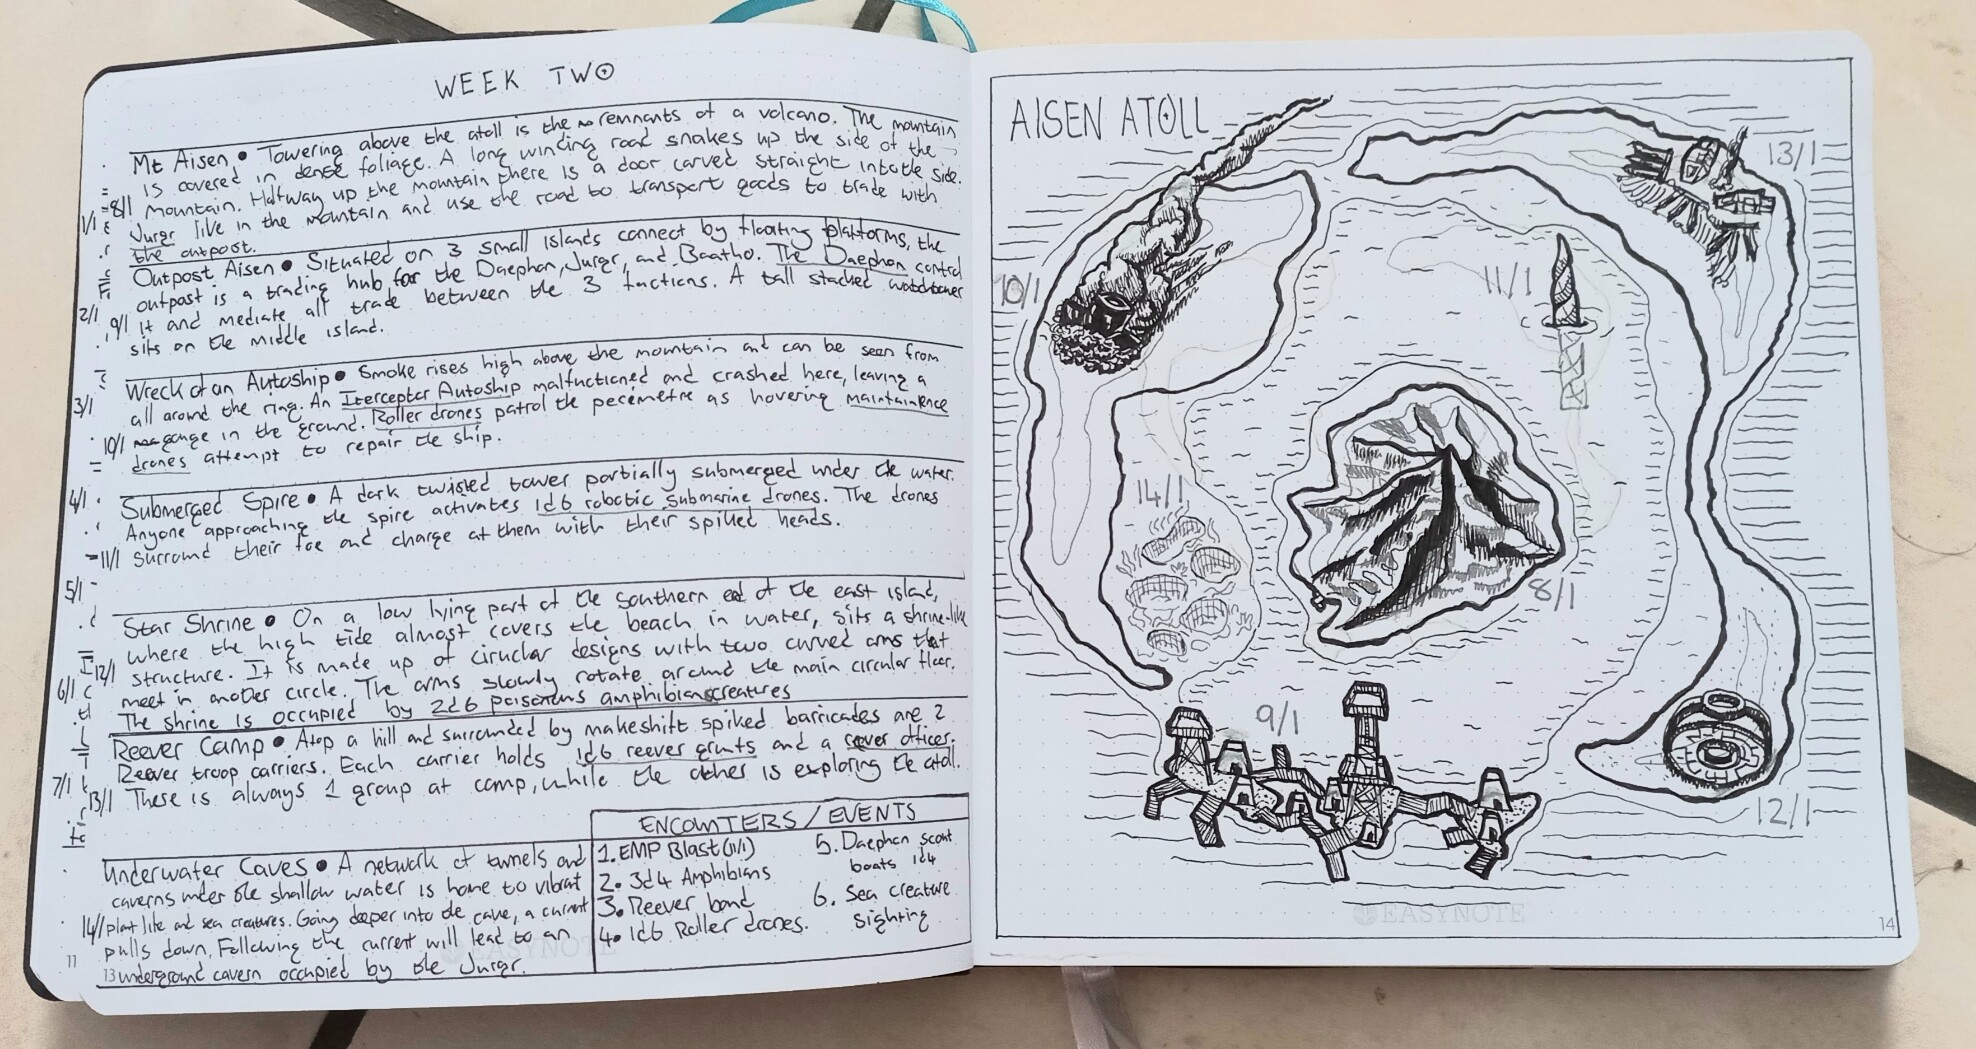 WEEK TWO
Mt Aisen • Towering above the atoll is the remnants of a volcano. The mountain
is covered in dense foliage. A long winding road snakes up the side of the
8/1 mountain. Halfway up the mountain there is a door carved straight into the side.
Jurgr live in the mountain and use the road to transport goods to trade with
the outpost.
Outpost Aisen • Situated on 3 small islands connect by floating platforms, the
outpost is a trading hub for the Daephon, Jurgr, and Baatho. The Daephon control
9/1 it and mediate all trade between the 3 factions. A tall stacked watchtower
sits on the middle island.
Wreck of an Autoship • Smoke rises high above the mountain and can be seen from
all around the ring. An Iterceptor Autoship malfuctioned and crashed here, leaving a
10/1 gouge in the ground. Roller drones patrol the perimetre as hovering maintainence
drones attempt to repair the ship.
Submerged Spire • A dark twisted tower partially submerged under the water.
Anyone approaching the spire activates 1d6 robotic submarine drones. The drones
11/1 surround their foe and charge at them with their spiked heads.
Star Shrine • On a low lying part of the southern end of the east island,
where the high tide almost covers the beach in water, sits a shrine-like
12/1 structure. It is made up of ciruclar designs with two curved arms that
meet in another circle. The arms slowly rotate around the main circular floor.
The shrine is occupied by 2d6 poisonous amphibian creatures
Reever Camp • Atop a hill and surrounded by makeshift spiked barricades are 2
Reever troop carriers. Each carrier holds 1d6 reever grunts and a reever officer.
13/1 There is always 1 group at camp, while the other is exploring the atoll.
Underwater Caves • A network of tunnels and
caverns under the shallow water is home to vibrat
14/1 plant life and sea creatures. Going deeper into the cave, a current
pulls down. Following the current will lead to an
underground cavern occupied by the Jurgr.
ENCOUNTERS / EVENTS
1. EMP Blast (11/1)
2. 3d4 Amphibians
3. Reever band
4. 1d6 Roller drones.
5. Daephon scout
boats 1d4
6. Sea creature
sighting
1/1
2/1
3/1
4/1
5/1
6/1
7/1
11
13
EASYNOTE
AISEN ATOLL
13/1
10/1
11/1
14/1
8/1
9/1
12/1
EASYNOTE
14